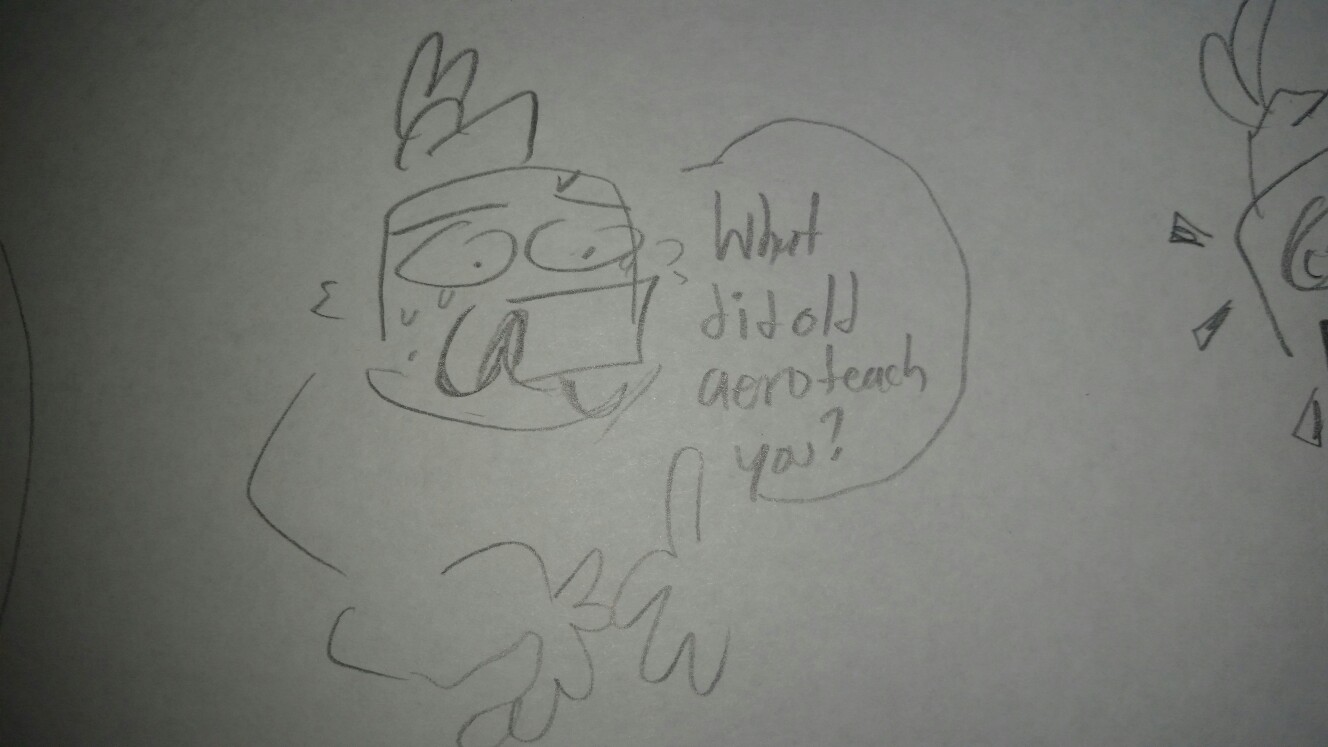 What
did old
aero teach
you?